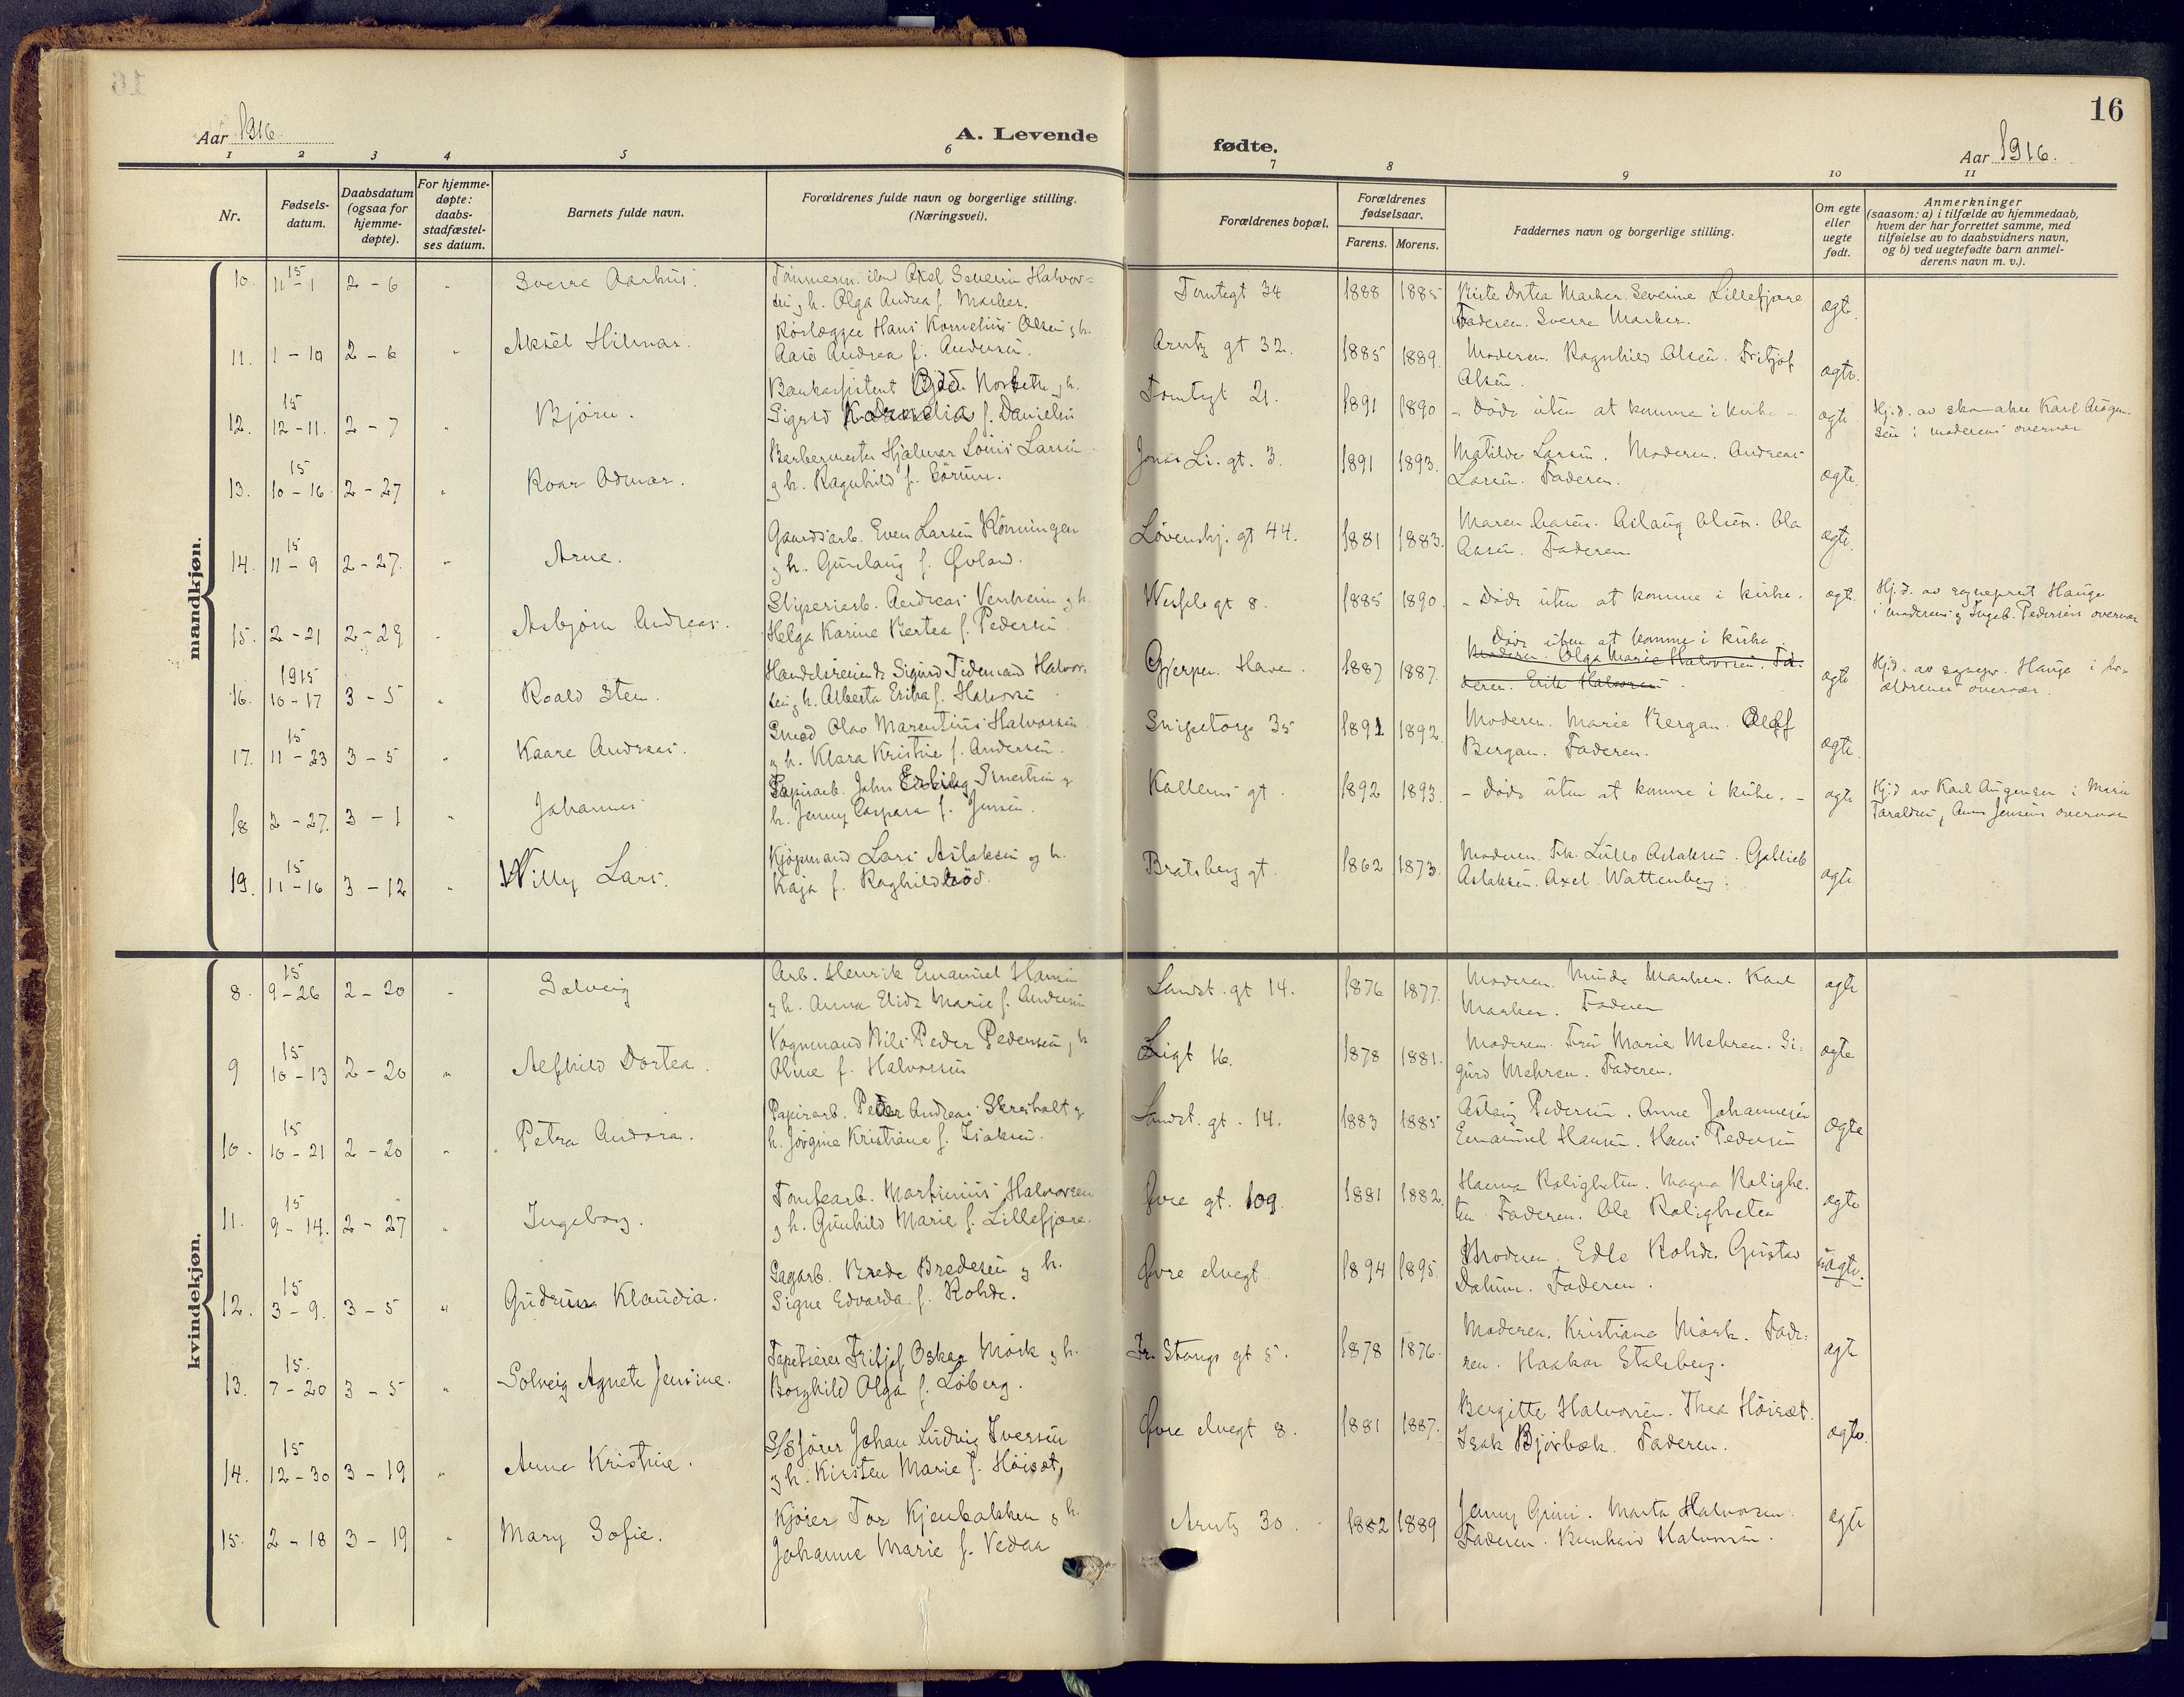 16
Aar 1916.
A. Levende
fødte.
Aar 1916.
1 2 3 4 5 6 7 8 9 10 11
Nr.
Fødsels-
datum.
Daabsdatum
(ogsaa for
hjemme-
døpte).
For hjemme-
døpte:
daabs-
stadfæstel-
ses datum.
Barnets fulde navn.
Forældrenes fulde navn og borgerlige stilling.
(Næringsvei).
Forældrenes bopæl.
Forældrenes
fødselsaar.
Farens. Morens.
Faddernes navn og borgerlige stilling.
Om egte
eller
uegte
født.
Anmerkninger
(saasom: a) i tilfælde av hjemmedaab,
hvem der har forrettet samme, med
tilføielse av to daabsvidners navn,
og b) ved uegtefødte barn anmel-
derens navn m. v.).
mandkjøn.
10. 15 11-1 2-6 " Sverre Aarhus.
Axel Severin Halvor-
sen g h. Olga Andrea f. Marker.
Tomtegt 34 1888 1885
Dortea Marker. Severine Lillefjære
Faderen. Sverre Marker.
egte.
11. 1-10 2-6 " Aksel Hilmar.
Rørlægger Hans Kornelius Olsen g h.
Aase Andrea f. Andersen.
Arntz gt 32. 1885 1889.
Moderen. Ragnhild Olsen. Fritjof
Olsen.
egte.
12. 15 12-11. 2-7 " Bjørn.
Bankassistent
Sigrid Kornelia f. Danielsen
Tomtegt 21. 1891 1890
- Døde uten at komme i kirke -
egte
Hj.d. av skomaker Karl Augen-
sen i moderens overvær
13. 15 10-16. 2-27 " Roar Odmar.
Barbermester Hjalmar Louis Larsen
g h. Ragnhild f. Sørum.
Jonas Li. gt. 3. 1891 1893.
Matilde Larsen. Moderen. Andreas
Larsen. Faderen.
egte.
14. 15 11-9 2-27. " Arne.
Gaardsarb. Even Larsen Rönningen
g h. Gunlaug f. Øvland.
Løvenskj. gt 44. 1881 1883.
Maren Aasen. Aslaug Olsen. Ola
Aasen. Faderen
egte.
15. 2-21 2-29 " Asbjørn Andreas.
Sliperiarb. Andreas Venheim g h.
Helga Karine Bertea f. Pedersen
Wesselsgt 8. 1885 1890.
- Døde uten at komme i kirke.
egte.
Hj.d. av sogneprest Hauge
i moderens g Ingeb. Pedersens overvær
16. 1915 10-17 3-5 " Roald Sten.
Handelsreisende Sigurd Tidemand Halvor-
sen g h. Alberta Erika f. Halvorsen
Gjerpen. Haven. 1887 1887.
Døde uten at komme i kirke
Moderen. Olga Marie Halvorsen. Fa-
deren. Erik Halvorsen.
egte
Hj.d. av sognepr. Hauge i for-
ældrenes overvær.
17. 15 11-23 3-5 " Kaare Andreas.
Smed Olav Marentius Halvorsen
g h. Klara Kristine f. Andersen.
Snipetorp 35 1891 1892.
Moderen. Marie Bergan. Olaf
Bergan. Faderen.
egte.
18 2-27. 3-1 " Johannes
Papirarb. John Erling g
h. Jenny Caspara f. Jensen.
Kallems gt. 1892 1893.
- Døde uten at komme i kirke. -
egte
Hj.d av Karl Augensen i Marie
Taraldsen, Anna Jensens overvær
19. 15 11-16 3-12 " Willy Lars.
Kjøpmand Lars Aslaksen og h.
Kaja f. Raghildsrød.
Bratsberg gt. 1862 1873.
Moderen. Frk. Lulle Aslaksen. Gotlieb
Aslaksen. Axel Wattenberg.
egte
kvindekjøn.
8. 15 9-26 2-20 " Solveig
Arb. Henrik Emanuel Hansen
g h. Anna Elida Marie f. Andersen
Landst. gt 14. 1876 1877.
Moderen. Minda Marker. Karl
Marker. Faderen
egte
9 15 10-13 2-20 " Alfhild Dortea.
Vognmand Nils Peder Pedersen g h
Oline f. Halvorsen
Ligt 16. 1878 1881.
Moderen. Fru Marie Mehren. Si-
gurd Mehren. Faderen.
egte
10. 15 10-21 2-20 " Petra Andora.
Papirarb. Peder Andreas Skreholt g
h. Jørgine Kristiane f. Isaksen.
Landst. gt. 14. 1883 1885
Aslaug Pedersen. Anne Johannesen
Emanuel Hansen. Hans Pedersen
egte
11. 15 9-14. 2-27 " Ingeborg.
Tomtearb. Martinius Halvorsen
g h. Gunhild Marie f. Lillefjære.
Øvre gt. 109. 1881 1882.
Hanna Roligheten. Magna Roligh-
ten. Faderen. Ole Roligheten
egte
12. 15 3-9. 3-5 " Gudrun Klaudia.
Sagarb. Brede Bredesen g h.
Signe Edvarda f. Rohde.
Øvre elvegt. 1894 1895.
Moderen. Edle Rohde. Gustav
Dalum. Faderen.
uegte.
13. 15. 7-20 3-5 " Solveig Agnete Jensine.
Tapetserer Fritjof Oskar Mörk g h.
Borghild Olga f. Löberg.
Fr. Stangs gt 5. 1878 1876.
Moderen. Kristiane Mörk. Fade-
ren. Haakon Stalsberg.
egte
14. 15 12-30 3-19 " Anna Kristine.
Johan Ludvig Iversen
g h. Kirsten Marie f. Höisæt,
Øvre elvegt 8. 1881 1887.
Bergitte Halvorsen. Thea Höisæt.
Isak Bjørbæk. Faderen.
egte.
15. 2-18 3-19 " Mary Sofie.
Kjører Tor Kjenbakken g h.
Johanne Marie f. Vedaa
Arntz 30. 1882 1889
Jenny Grini. Marta Halvorsen.
Faderen. Bernhard Halvorsen.
egte